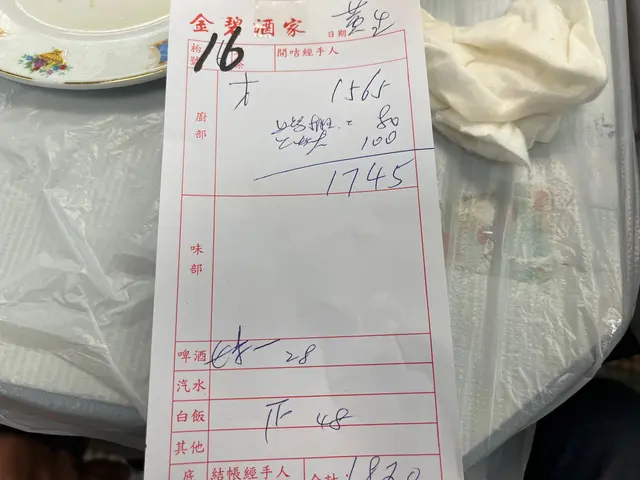 金碧酒家
黃生
日期
枱號 16
開咭經手人
廚部
1565
80
100
1745
味部
啤酒 28
汽水
白飯 48
其他
底 結帳經手人 合計 1820